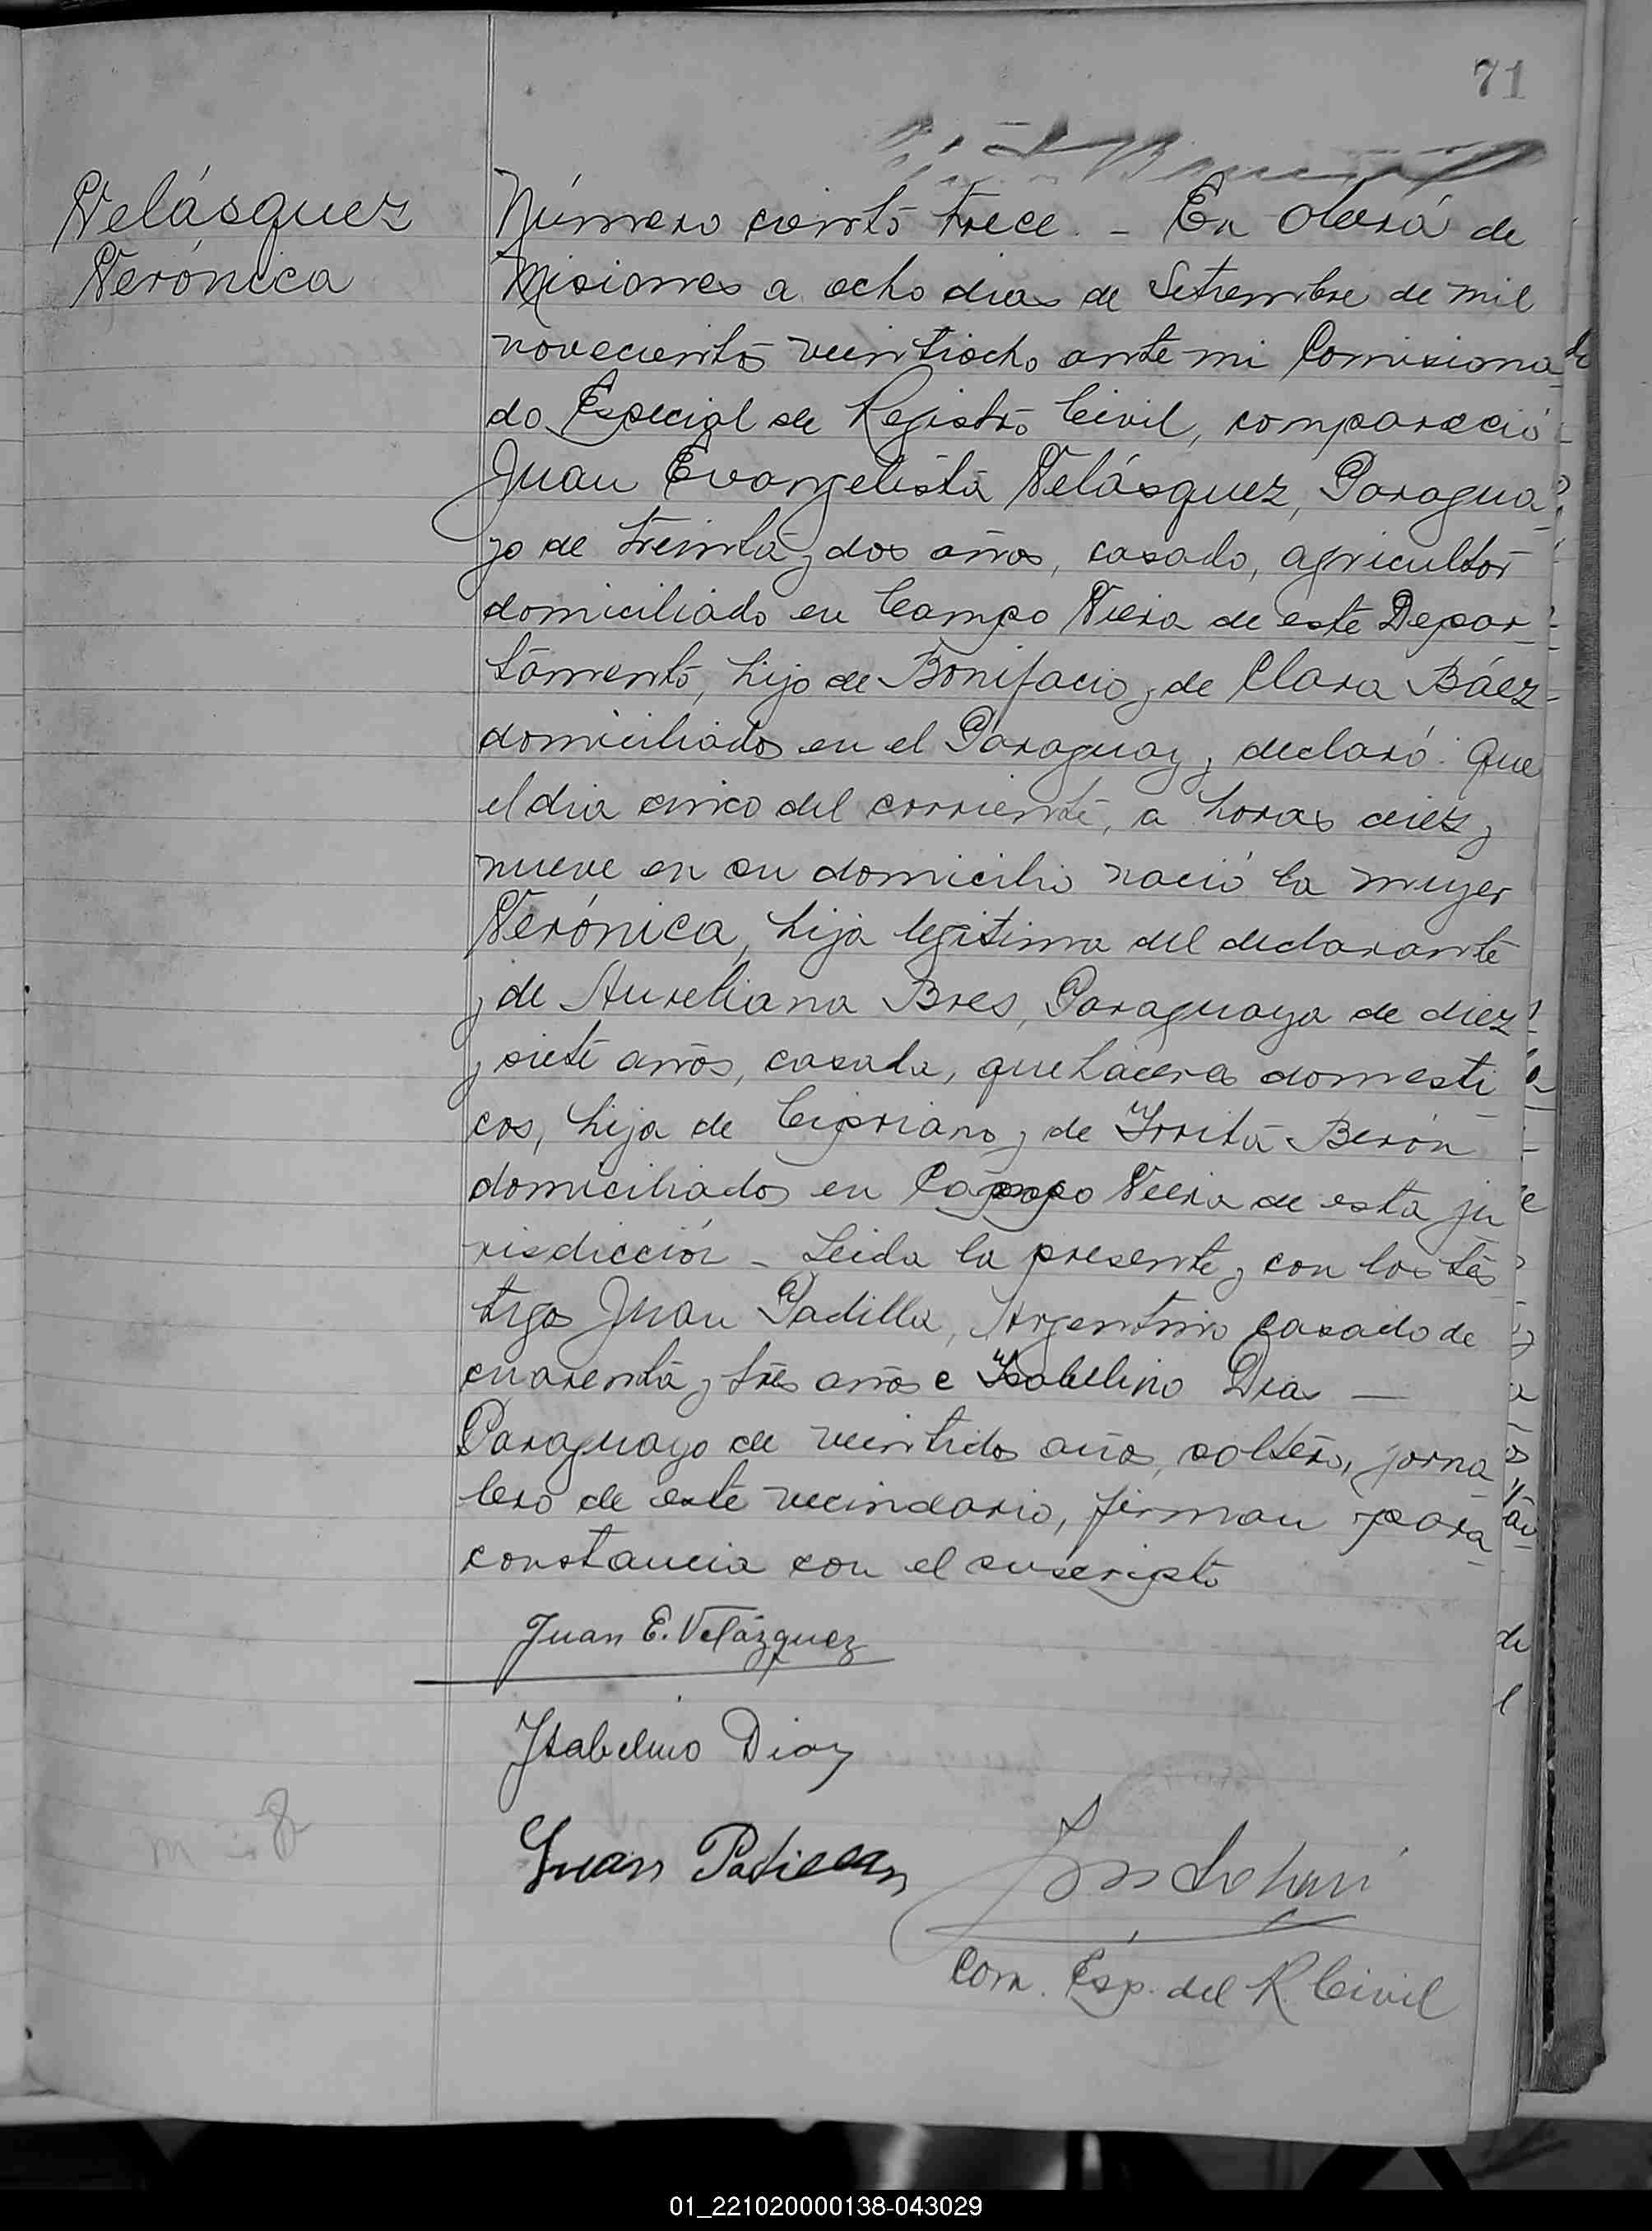 71
Velásquez
Verónica
Número ciento trece. - En Oberá de
Misiones a ocho dias de Setiembre de mil
novecientos veintiocho ante mi Comisiona
do Especial de Registro Civil, compareció
Juan Evangelista Velásquez, Paragua
yo de treinta y dos años, casado, agricultor
domiciliado en Campo Viera de este Depar-
tamento, hijo de Bonifacio y de Clara Báez
domiciliados en el Paraguay y declaró: Que
el dia cinco del corriente, a horas diez y
nueve en su domicilio nació la mujer
Verónica, hija legitima del declarante
y de Aureliana Bres, Paraguaya de diez
y siete años, casada, quehaceres domesti
cos, hija de Cipriano y de Irrita Berón
domiciliados en Campo Viera de esta ju
risdicción - Leida la presente y con los tes
tigos Juan Padilla, Argentino casado de
cuarenta y tres años e Isabelino Dias —
Paraguayo de veintidos años, soltero, jorna
lero de este vecindario, firman para
constancia con el suscripto
Juan E. Velázquez
Isabelino Diaz
Juan Padilla
Com. Esp. del R. Civil
01_221020000138-043029